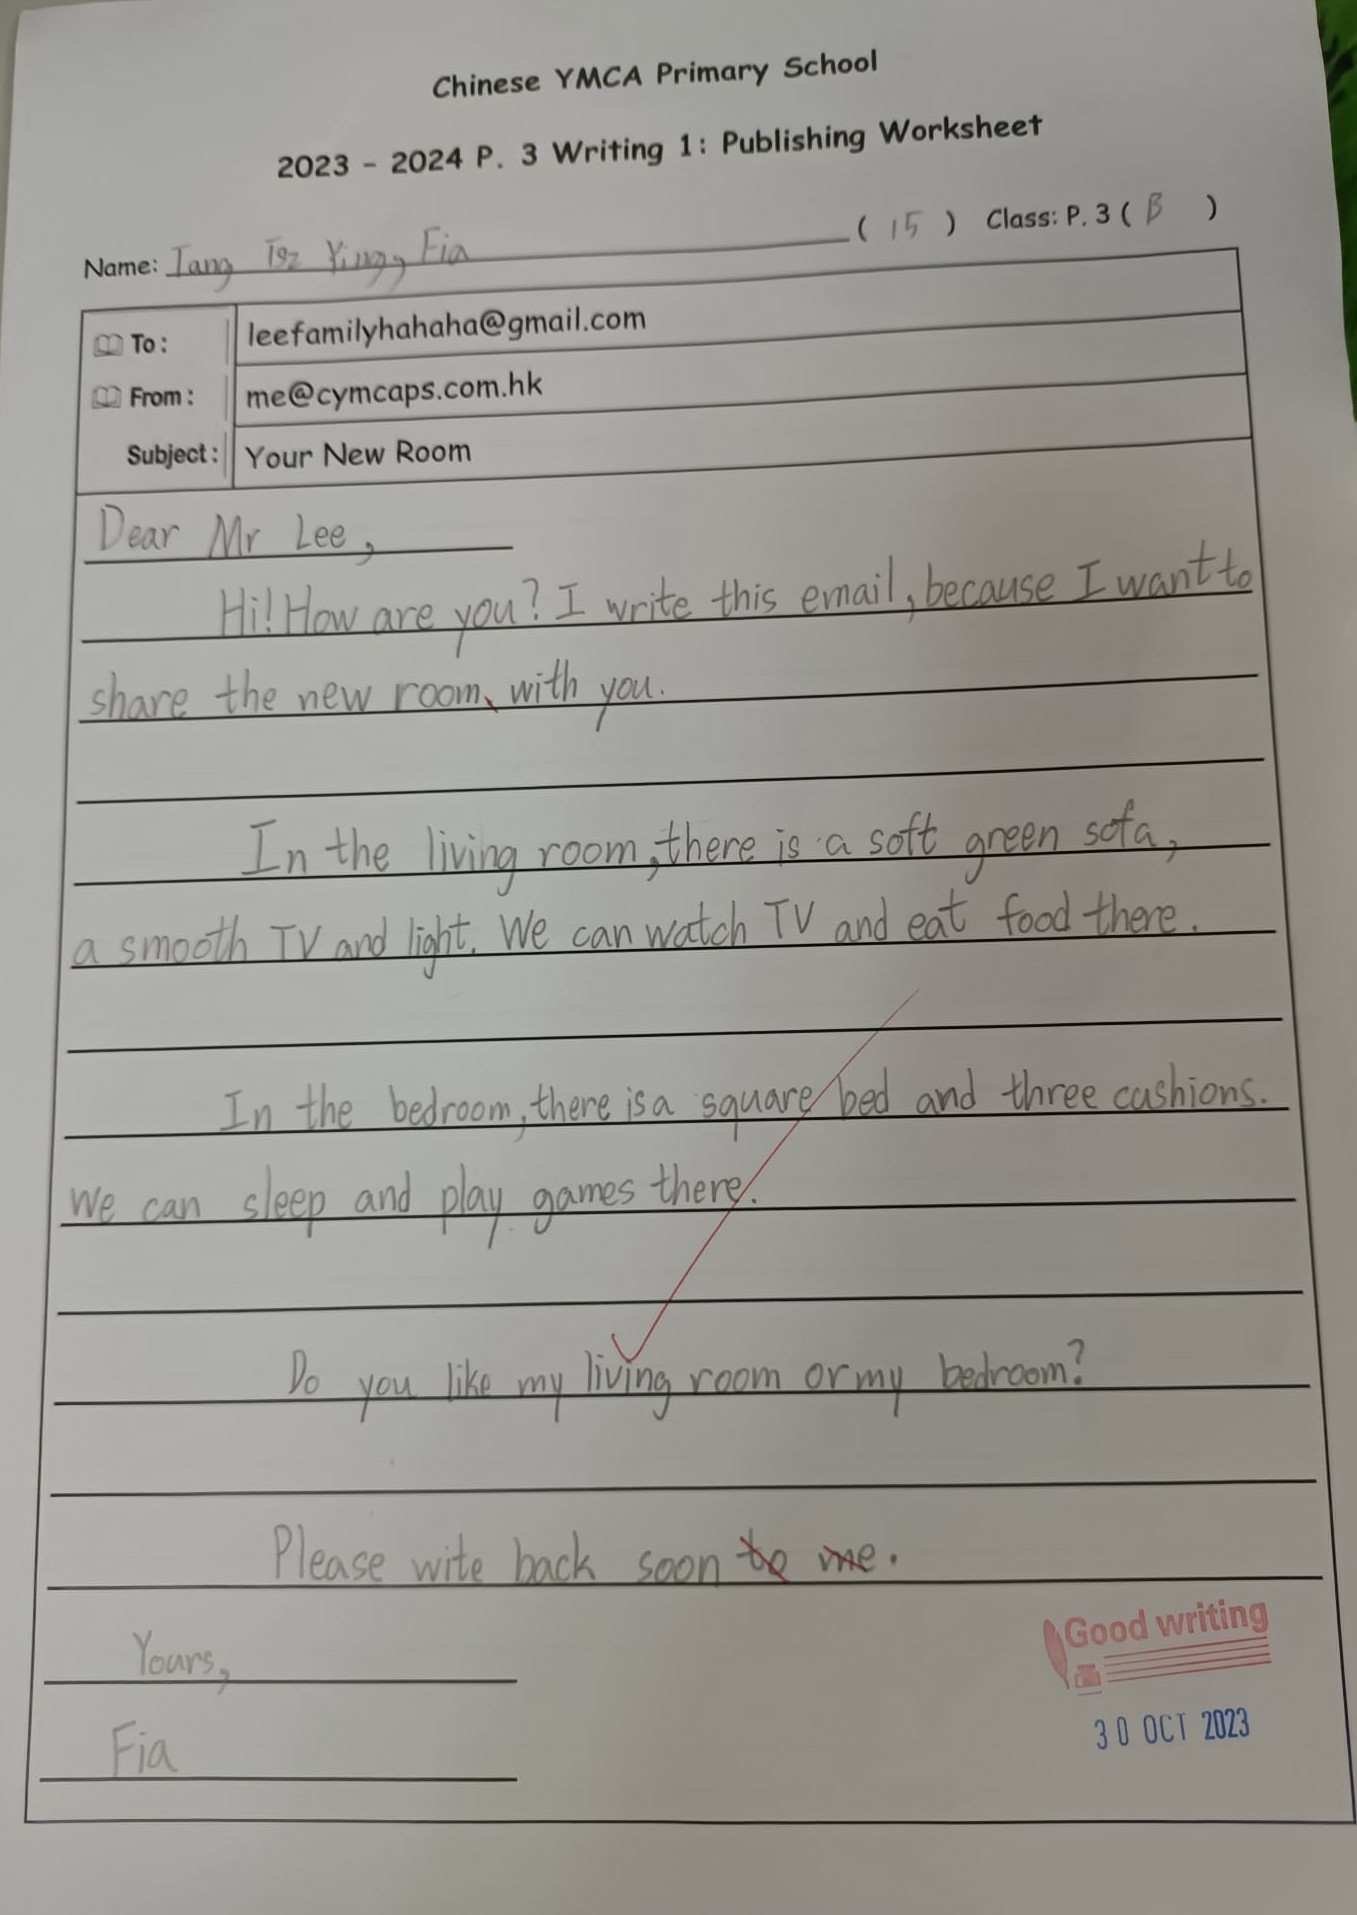 Chinese YMCA Primary School
2023 - 2024 P. 3 Writing 1: Publishing Worksheet
Name: Tang Tsz Ying, Fia ( 15 ) Class: P. 3 ( B )
To: leefamilyhahaha@gmail.com
From: me@cymcaps.com.hk
Subject: Your New Room
Dear Mr Lee,
Hi! How are you? I write this email, because I want to
share the new room, with you.
In the living room, there is a soft green sofa,
a smooth TV and light. We can watch TV and eat food there.
In the bedroom, there is a square bed and three cushions.
We can sleep and play games there.
Do you like my living room or my bedroom?
Please wite back soon to me.
Yours,
Fia
Good writing
30 OCT 2023